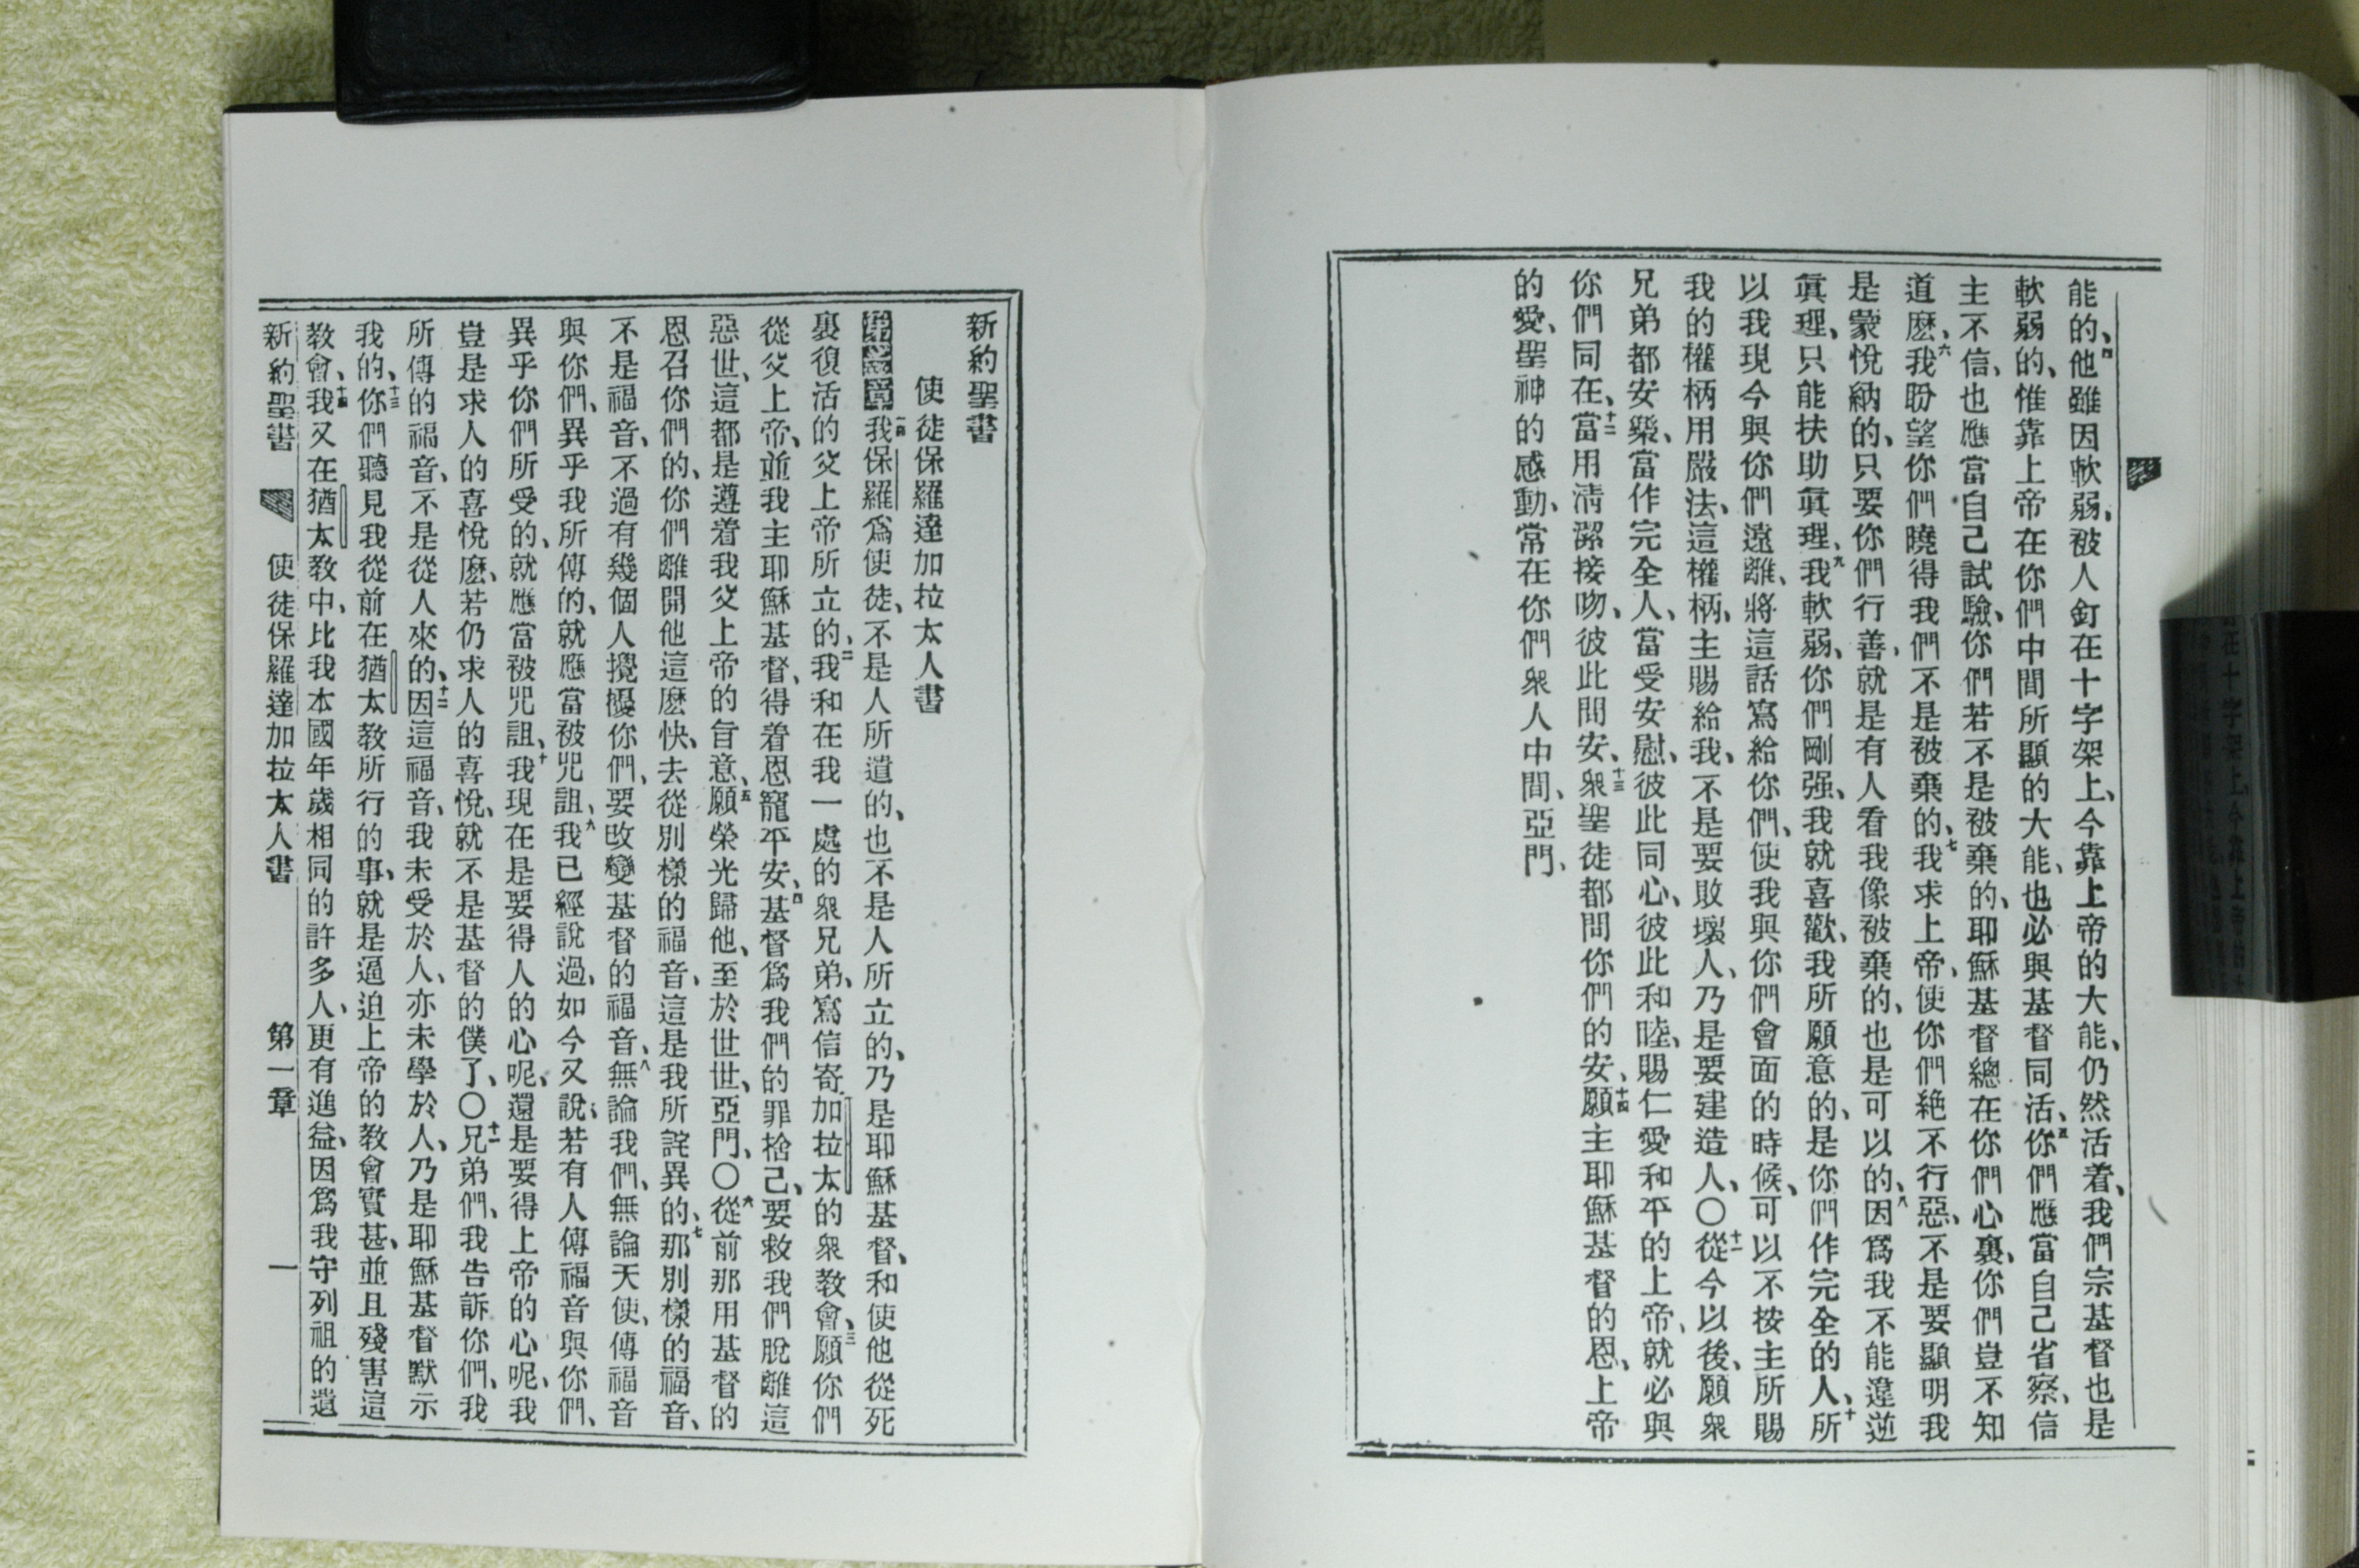 能的、四他雖因軟弱、被人釘在十字架上、今靠上帝的大能、仍然活着、我們宗基督也是
軟弱的、惟靠上帝在你們中間所顯的大能、也必與基督同活、五你們應當自己省察、信
主不信、也應當自己試驗、你們若不是被棄的、耶穌基督總在你們心裏、你們豈不知
道麽、六我盼望你們曉得我們不是被棄的、七我求上帝、使你們絶不行惡、不是要顯明我
是蒙悅納的、只要你們行善、就是有人看我像被棄的、也是可以的、八因爲我不能違逆
眞理、只能扶助眞理、九我軟弱、你們剛强、我就喜歡、我所願意的、是你們作完全的人、十所
以我現今與你們遠離、將這話寫給你們、使我與你們會面的時候、可以不按主所賜
我的權柄用嚴法、這權柄、主賜給我、不是要敗壞人、乃是要建造人、〇十一從今以後、願衆
兄弟都安樂、當作完全人、當受安慰、彼此同心、彼此和睦、賜仁愛和平的上帝、就必與
你們同在、十二當用清潔接吻、彼此問安、十三衆聖徒都問你們的安、十四願主耶穌基督的恩、上帝
的愛、聖神的感動、常在你們衆人中間、亞門、
新約聖書
使徒保羅達加拉太人書
第一章一我保羅爲使徒、不是人所遣的、也不是人所立的、乃是耶穌基督、和使他從死
裏復活的父上帝所立的、二我和在我一處的衆兄弟、寫信寄加拉太的衆教會、三願你們
從父上帝、並我主耶穌基督、得着恩寵平安、四基督爲我們的罪捨己、要救我們脫離這
惡世、這都是遵着我父上帝的旨意、五願榮光歸他、至於世世、亞門、〇六從前那用基督的
恩召你們的、你們離開他這麽快、去從別樣的福音、這是我所詫異的、七那別樣的福音、
不是福音、不過有幾個人攪擾你們、要改變基督的福音、八無論我們、無論天使、傳福音
與你們、異乎我所傳的、就應當被咒詛、九我已經說過、如今又說、若有人傳福音與你們、
異乎你們所受的、就應當被咒詛、十我現在是要得人的心呢、還是要得上帝的心呢、我
豈是求人的喜悅麽、若仍求人的喜悅、就不是基督的僕了、〇十一兄弟們、我告訴你們、我
所傳的福音、不是從人來的、十二因這福音、我未受於人、亦未學於人、乃是耶穌基督默示
我的、十三你們聽見我從前在猶太教所行的事、就是逼迫上帝的教會實甚、並且殘害這
教會、十四我又在猶太教中、比我本國年歲相同的許多人、更有進益、因爲我守列祖的遺
新約聖書 使徒保羅達加拉太人書 第一章 一